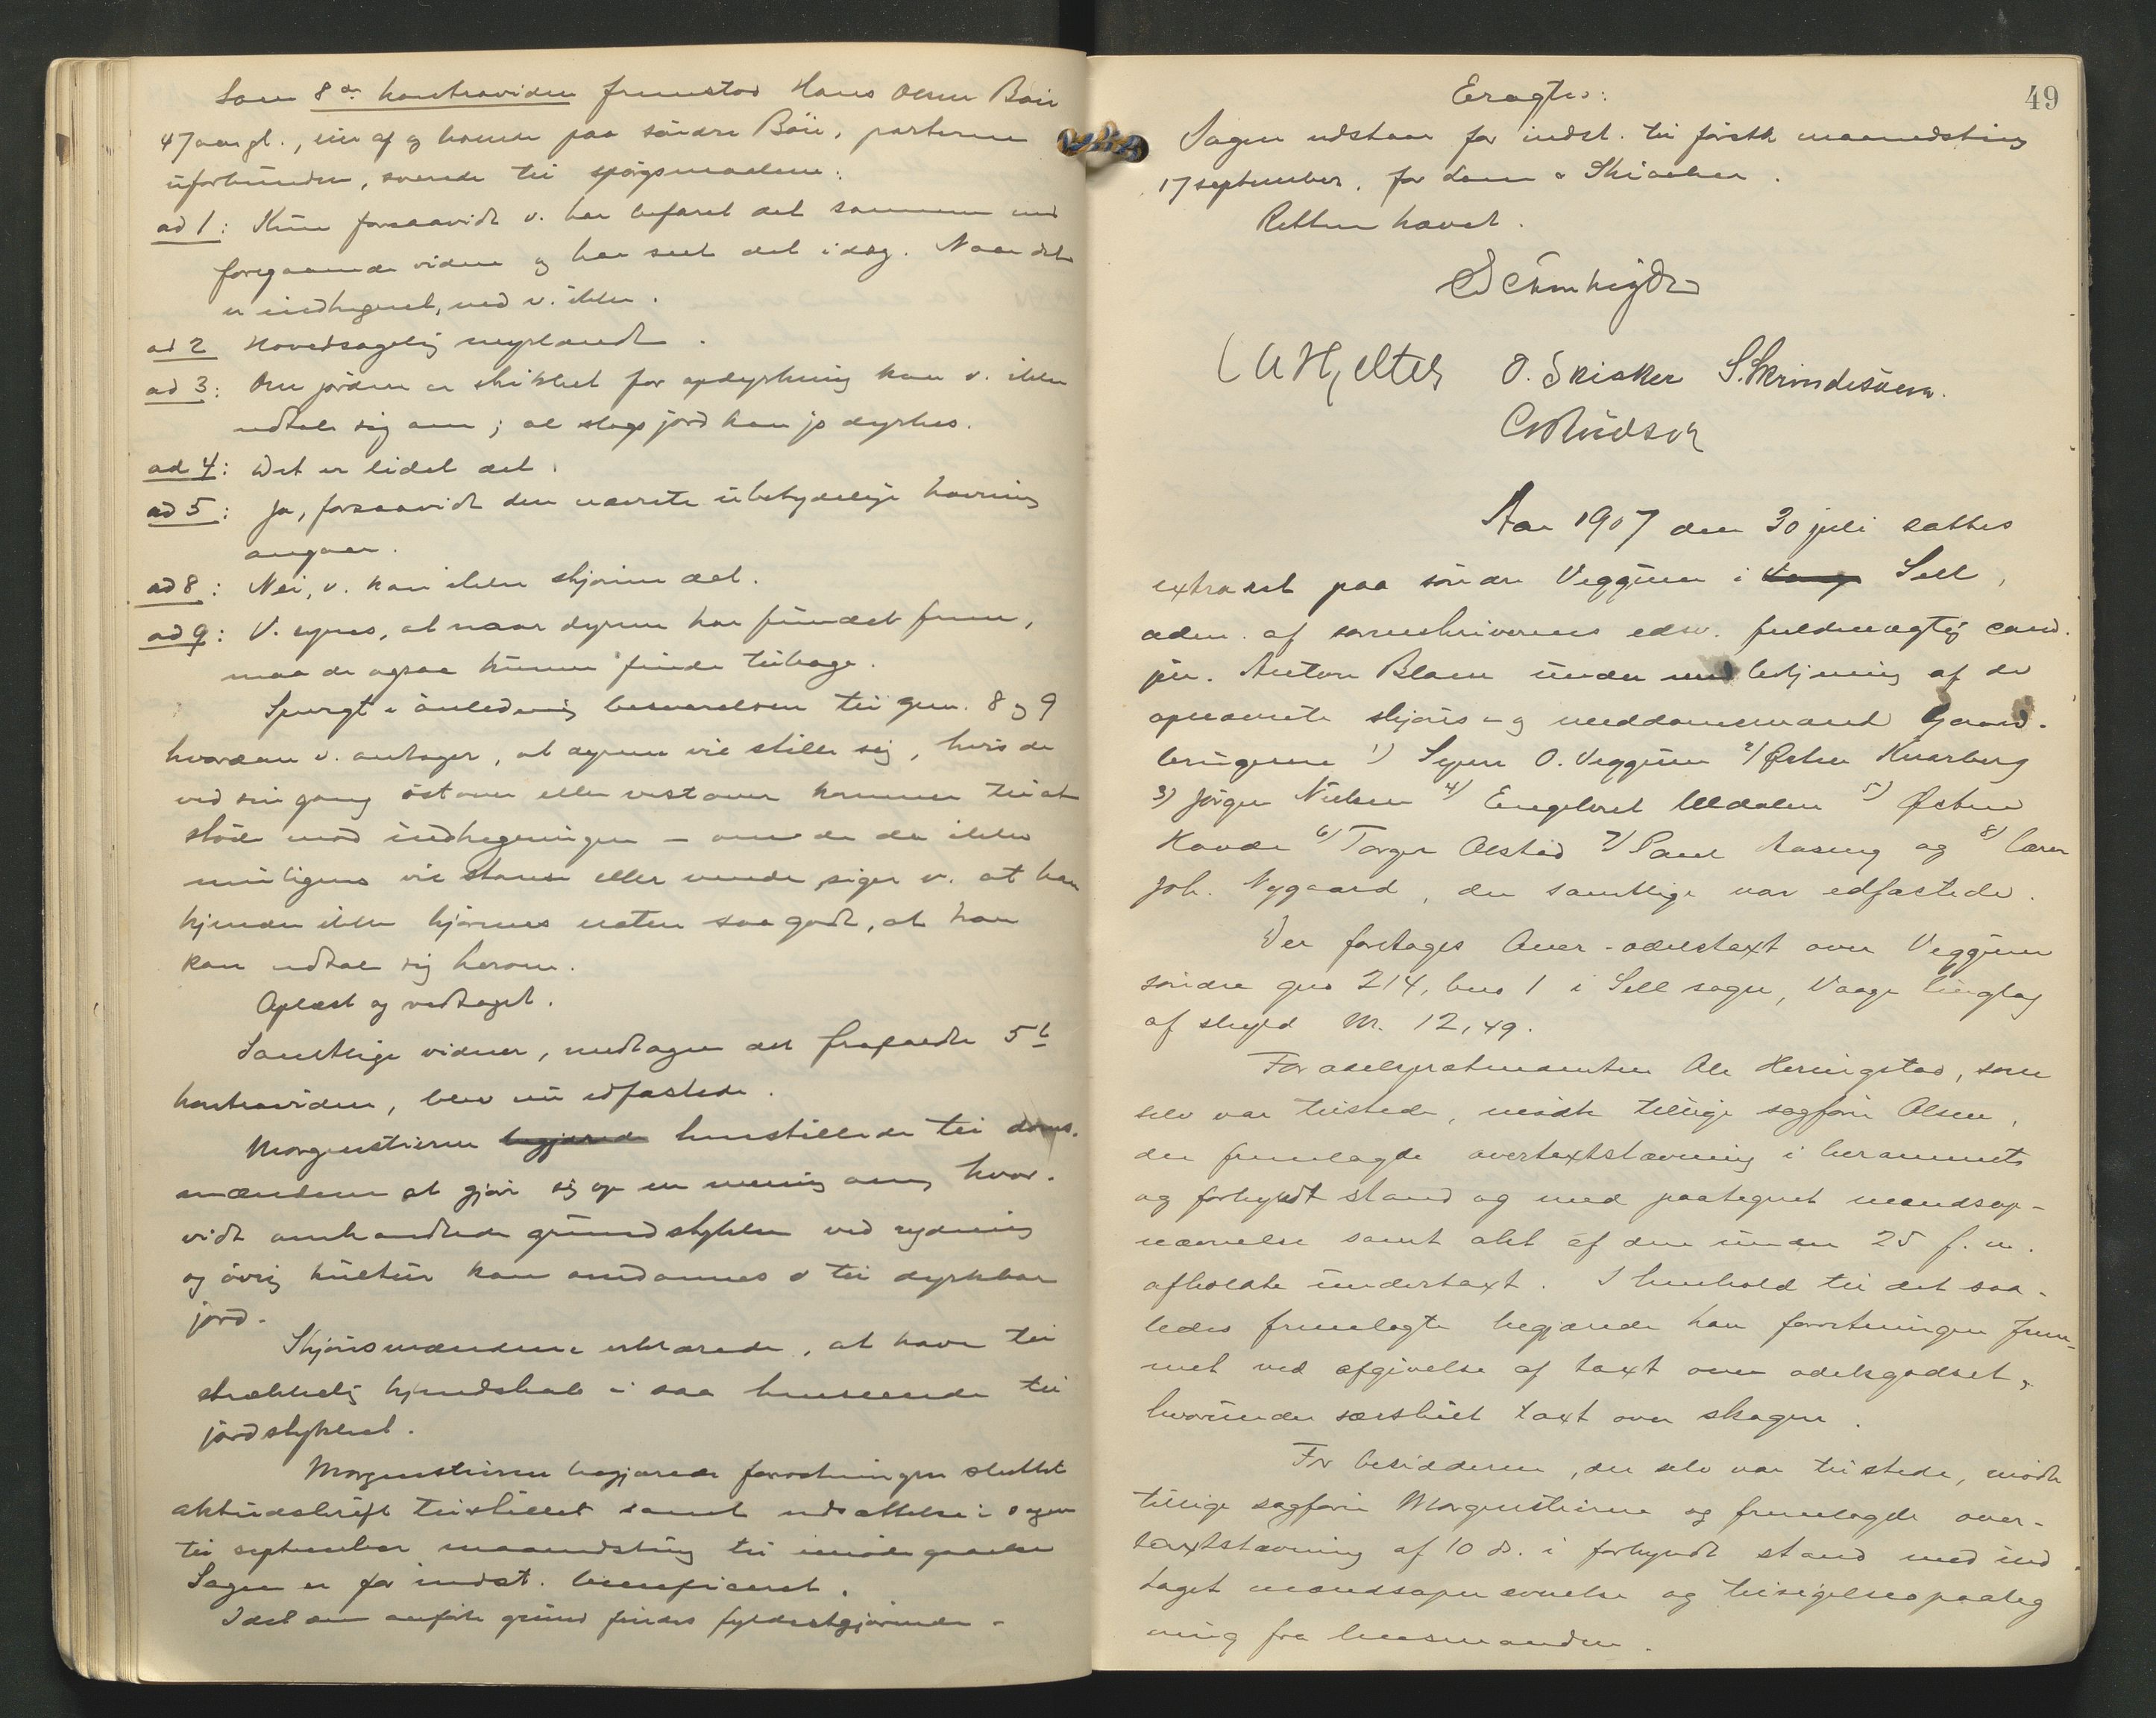 Som 8de kontravidne fremstod Hans Olsen Böie
47 aar gl., eier af og boende paa söndre Böie, parterne
uforbunden, svarede til spörgsmaalene:
ad 1: Kun forsaavidt v. har befaret det sammen med
foregaaende vidne og har seet det idag. Naar det
er indhegnet, ved v. ikke.
ad 2 Hovedsagelig myrlændt.
ad 3: Om jorden er skikket for opdyrkning kan v. ikke
udtale sig om; al slags jord kan jo dyrkes.
ad 4: Det er lidet det.
ad 5: Ja, forsaavidt den nævnte ubetydelige havning
angaar.
ad 8: Nei, v. kan ikke skjönne det.
ad 9: V. synes, at naar dyrene har fundet frem,
maa de ogsaa kunne finde tilbage.
Spurgt i anledning besvarelsen til spm. 8 og 9
hvordan v. antager, at dyrene vil stille sig, hvis de
ved sin gang östover eller vestover kommer til at
stöde mod indhegningen – om de da ikke
muligens vil stanse eller vende, siger v. at han
kjender ikke kjörnes natur saa godt, at han
kan udtale sig herom.
Oplæst og vedtaget.
Samtlige vidner, undtagen det frafaldte 5te
kontravidne, blev nu edfæstede.
Morgenstierne begjærede henstillede til doms-
mændene at gjöre sig op en mening om, hvor-
vidt omhandlede grundstykke ved rydning
og övrig kultur kan omdannes til dyrkbar
jord.
Skjönsmændene erklærede, at have til
strækkelig kjendskab i saa henseende til
jordstykket.
Morgenstierne begjærede forretningen sluttet
aktudskrift tilstillet samt udsættelse i sagen
til september maanedsting til imödegaaelse
Sagen er for indst. beneficeret.
Idet den anförte grund findes fyldestgjörende –
49
Eragtes:
Sagen udstaar for indst. til förstk maanedsting
17 september, for Lom & Skiaker.
Retten hævet.
O. Skiaker S. Skrindesöen.
Aar 1907 den 30 juli sattes
extraret paa söndre Veggum i Vaage Sell,
adm. af sorenskriverens edsv. fuldmægtig cand.
jur. Anton Blom under medbetjening af de
opnævnte skjöns- og meddomsmænd Gaard-
brugerne 1) Syver O. Veggum 2) Østen Kvarberg
3) Jörgen Nielsen 4) Engebret Uldalen 5) Østen
Havde 6) Torger Olstad 7) Paul Aaseng og 8) lærer
Joh. Nygaard, der samtlige var edfæstede.
Der foretages Over-odelstaxt over Veggum
söndre gno 214, bno 1 i Sell sogn, Vaage tinglag
af skyld M. 12,49.
For odelsprætendenten Ole Heringstad, som
selv var tilstede, mödte tillige sagförer Olsen,
der fremlagde overtaxtstævning i berammets
og forkyndt stand og med paategnet mandsop-
nævnelse samt akt af den under 25 f.m.
afholdte undertaxt. I henhold til det saa-
ledes fremlagte begjærede han forretningen frem-
met ved afgivelse af taxt over odelsgodset,
hvorunder særskilt taxt over skogen.
For besidderen, der selv var tilstede, mödte
tillige sagförer Morgenstierne og fremlagde over-
taxtstævning af 10 ds. i forkyndt stand med ind
taget mandsopnævnelse og tilsigelsespaateg
ning fra lensmanden.